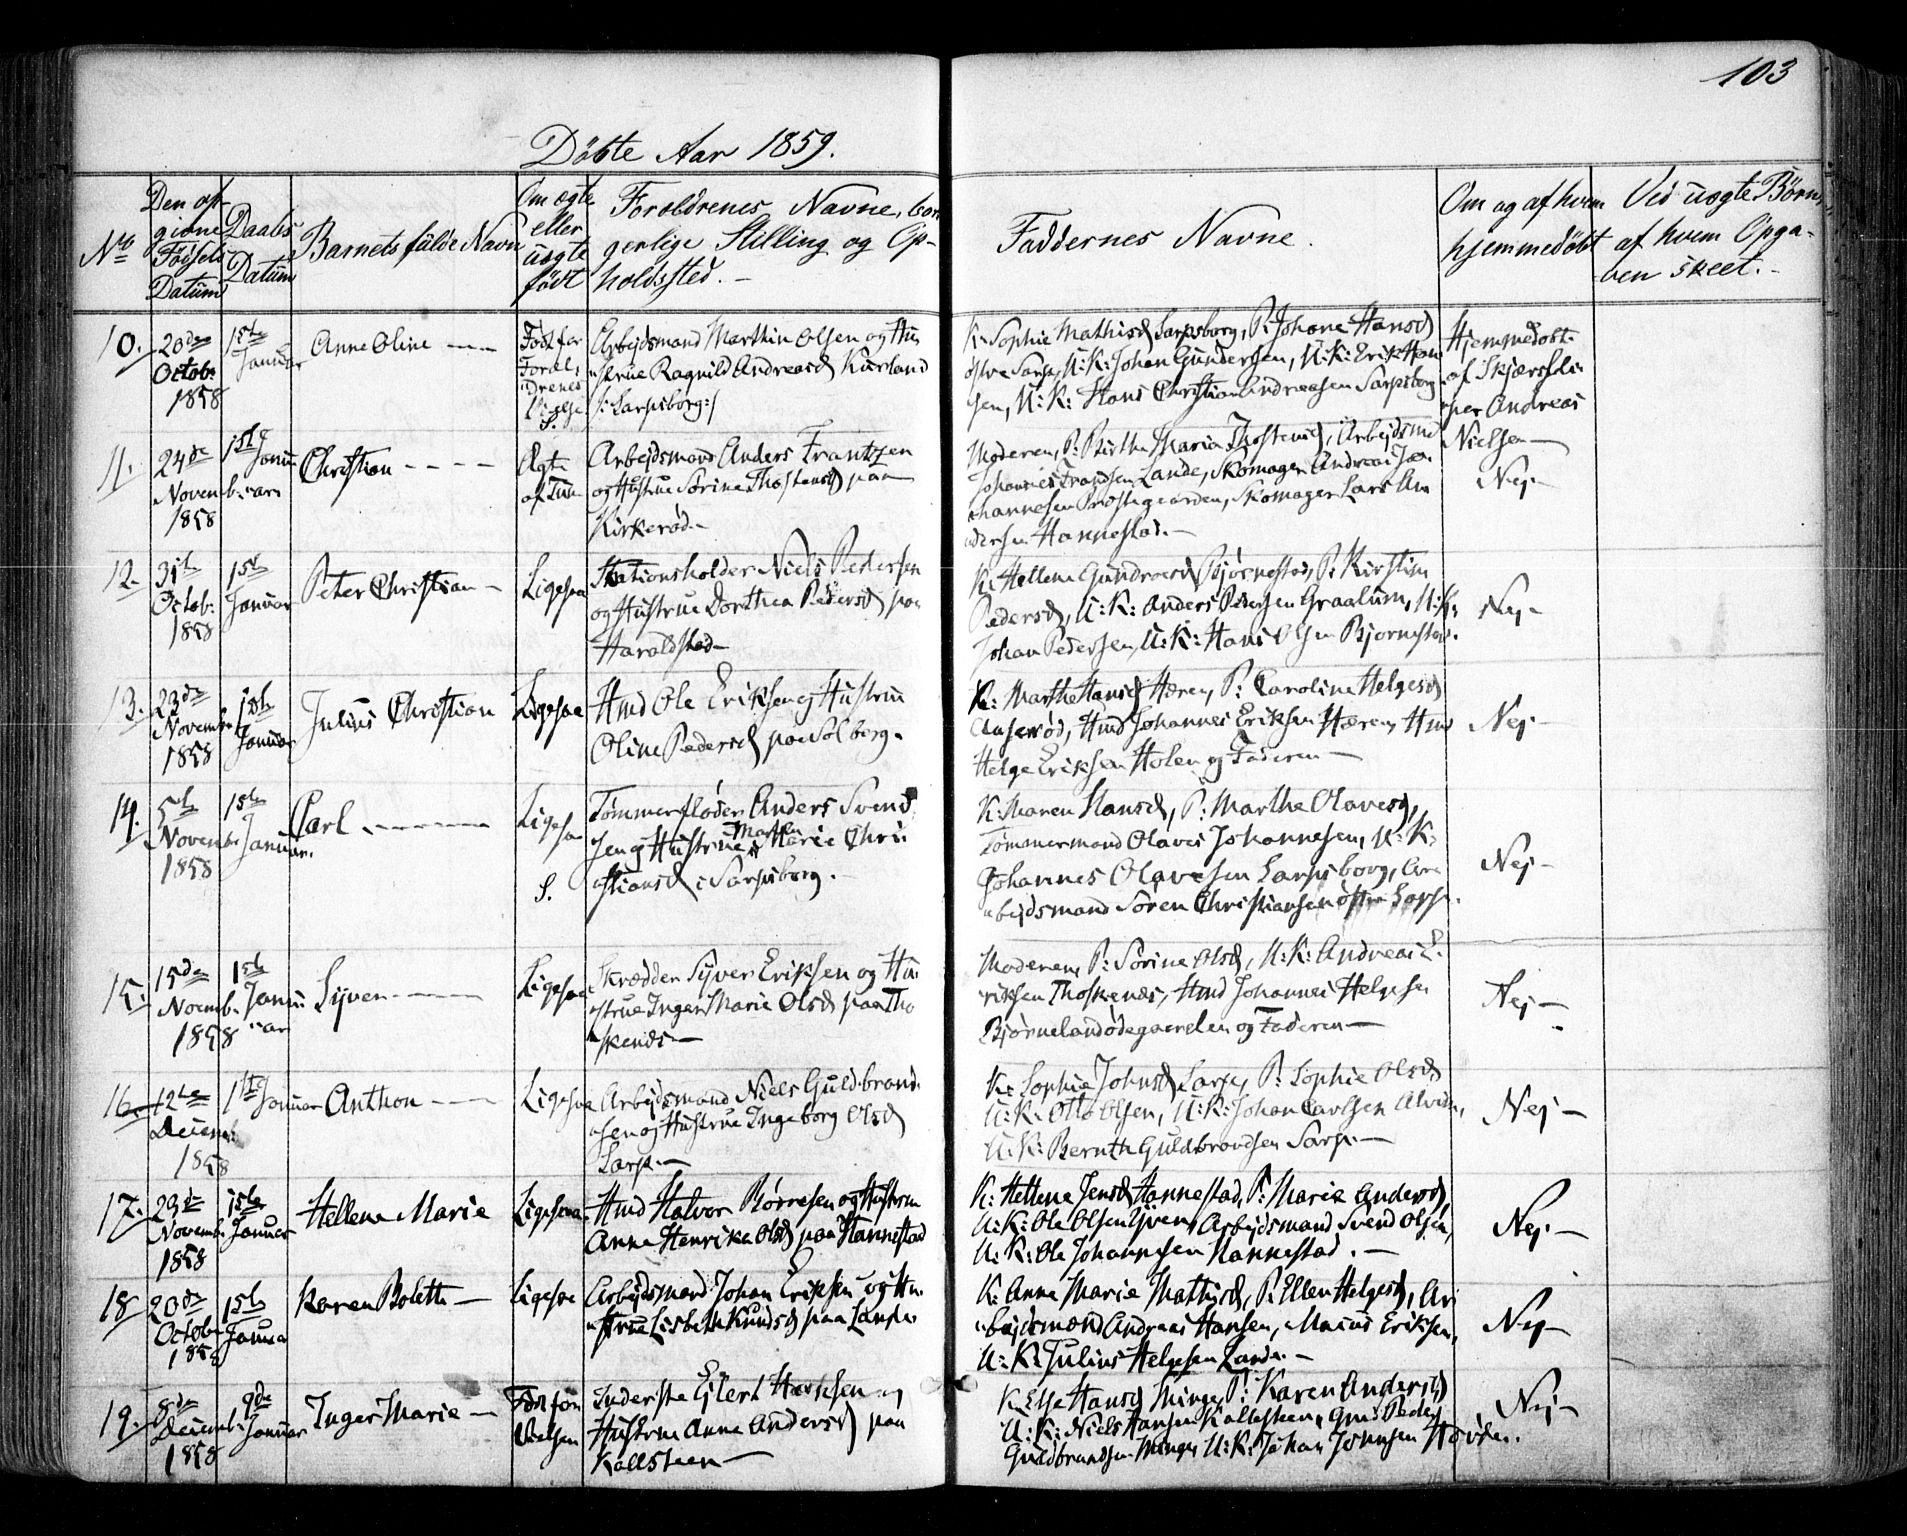 103
Döbte Aar 1859.
No
Den op-
givne
Födsels
Datum
Daabs
Datum
Barnets fulde Navn
Om ægte
eller
uægte
födt
Forældrenes Navne, bor-
gerlige Stilling og Op-
holdssted. -
Faddernes Navne.
Om og af hvem
hjemmedöbt
Ved uægte Börn,
af hvem Opga-
ven skeet. -
10.
20de
Octob:
1858
1ste
Januar
Anne Oline
Födt før
Foræl-
drenes
S.
Arbejdsmand Marthin Olsen og Hu
strue Ragnild Andreasd Kurland
/: Sarpsborg :/
K: Sophie Mathisd Sarpsborg, P: Johane Hansd
østre Sarp, U: K: Johan Gundersen, U: K: Erik Han
sen, U: K: Hans Christian Andreasen Sarpsborg
Hjemmedøbt
af
per Andreas
Nielsen
11.
24de
Novemb.
1858
1ste Janu
ar
Christian
Ægte
Arbejdsmand Anders Frantzen
og Hustrue Sørine Thostensd paa
Kirkerød. -
Moderen, P: Birthe Maria Thostensd, Arbejdsmd
Johannes Frandsen Lande, Skomager Andreas Jo
hannesen Prestegaarden, Skomager Lars An
dersen Hannestad. -
Nej -
12.
31te
Octob:
1858
1ste
Januar
Peter Christian -
Ligesaa
Stationsholder Niels Pedersen
og Hustrue Dorthea Pedersd paa
Haraldstad -
K: Hellene Gundroesd Bjørnestad, P: Kirstine
Pedersd, U: K: Anders Pedersen Graalum, U: K:
Johan Pedersen, U: K: Hans Olsen Bjørnestad.
Nej -
13.
23de
Novemb
1858
1ste
Januar
Julius Christian
Ligesaa
Hmd Ole Eriksen og Hustrue
Oline Pedersd paa Solberg.
K: Marthe Hansd Hæren, P: Caroline Helgesd
Hmd Johannes Eriksen Hæren, Hmd
Helge Eriksen Holen og Faderen -
Nej -
14.
5te
Novemb:
1858
1ste
Januar.
Carl
Ligesaa
S.
Tømmerfløder Anders Svend
sen og Hustrue Marthe Marie Chri
stiansd i Sarpsborg. -
K: Maren Hansd, P: Marthe Olavesd,
Tømmermand Olaves Johannesen, U: K:
Johannes Olavesen Sarpsborg, Ar
bejdsmand Søren Christiansen østre Sarp.
Nej -
15.
15de
Novemb.
1858
1ste
Janu
ar
Syver
Ligesaa
Skrædder Syver Eriksen og Hu
strue Inger Marie Olsd paa Tho
skenes -
Moderen, P: Sørine Olsd, U: K: Andreas E.
riksen Thoskenes, Hmd Johannes Helgesen
Bjørnelandødegaarden og Faderen -
Nej -
16.
12te
Decemb:
1858
1ste Januar
Anthon
Ligesaa
Arbejdsmand Niels Guldbrand
sen og Hustrue Ingeborg Olsd
Sarp. -
K: Sophie Johnsd Sarp, P: Sophie Olsd
U: K: Otto Olsen, U: K: Johan Carlsen Alvim,
U: K: Bernth Guldbrandsen Sarp. -
Nej -
17.
23de
Novemb.
1858
1ste
Januar
Hellene Marie
Ligesaa
Hmd Halvor Børresen og Hustrue
Anne Henrika Olsd paa Hannestad
K: Hellene Jensd Hannestad, P: Marie Andersd,
U: K: Ole Olsen Yven, Arbejdsmand Svend Olsen,
U: K: Ole Johannesen Hannestad. -
Nej -
18
20de
Octob:
1858
1ste
Janua
Karen Bolette -
Ligesaa
Arbejdsmand Johan Eriksen og Hu
strue Lisbeth Knudsd paa Lande
K: Anne Marie Mathisd, P: Ellen Helgesd, Ar
bejdsmand Andreas Hansen, Macus Eriksen,
U: K: Julius Helgesen Lande. -
Nej -
19.
8de
Decemb:
1858
9de
Januar
Inger Marie -
Født før
Vielsen
Inderste Ejlert Hansen og
Hustrue Anne Andersd paa
Kallsteen -
K: Else Hansd Minge, P: Karen Andersd,
U: K: Niels Hansen Kallesteen, Peder
Guldbrandsen Minge, U: K: Johan Johnsen
Nej -